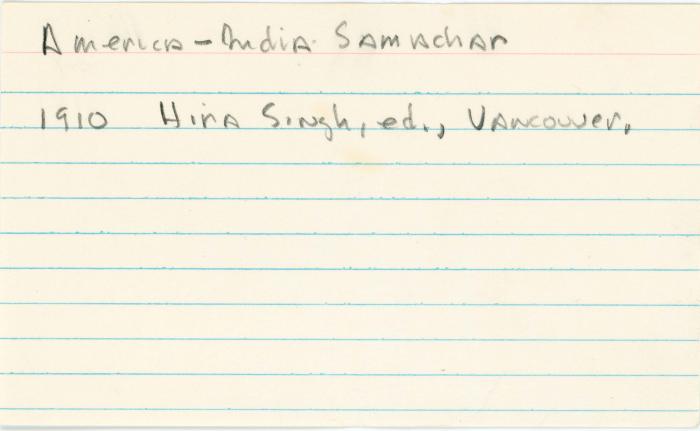 America-India Samachar
1910 Hira Singh, ed., Vancouver.